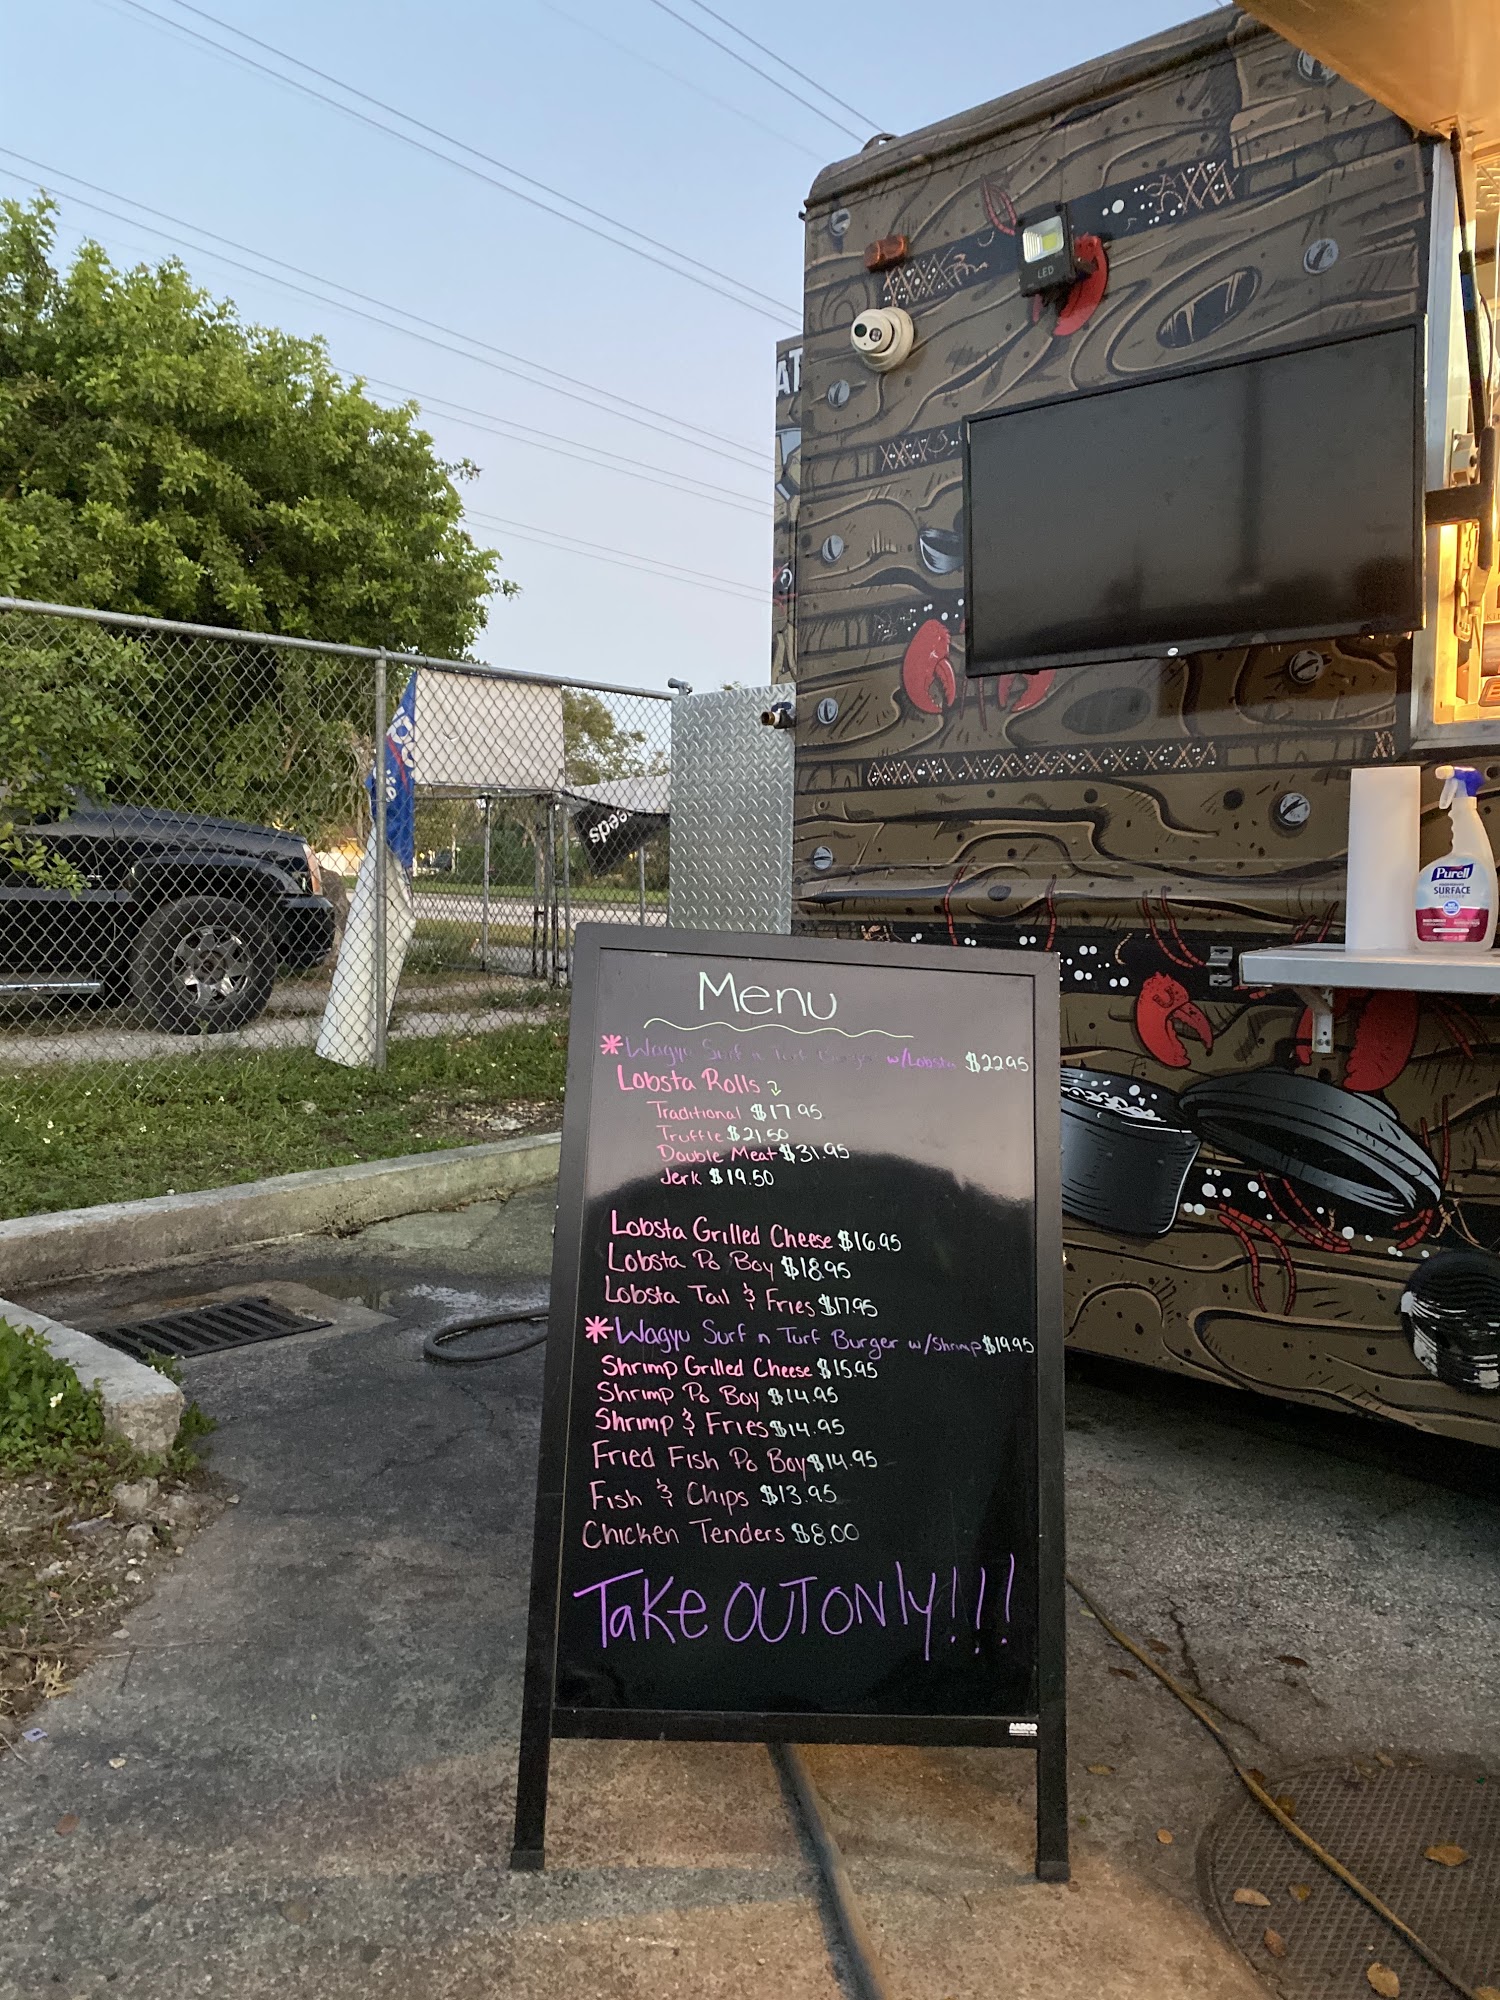 AT
LED
Purell
SURFACE
speed
Menu
*Wagyu Surf n Turf Burger w/Lobsta $22.95
Lobsta Rolls
Traditional $17.95
Truffle $21.50
Double Meat $31.95
Jerk $19.50
Lobsta Grilled Cheese $16.95
Lobsta Po Boy $18.95
Lobsta Tail & Fries $17.95
*Wagyu Surf n Turf Burger w/Shrimp $19.95
Shrimp Grilled Cheese $15.95
Shrimp Po Boy $14.95
Shrimp & Fries $14.95
Fried Fish Po Boy $14.95
Fish & Chips $13.95
Chicken Tenders $8.00
Take OUT ONly!!!
AARCO